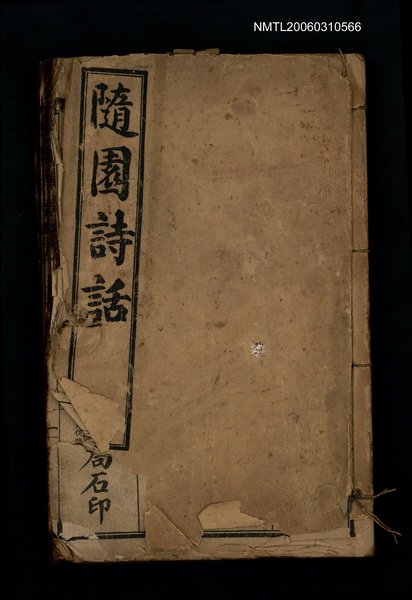 NMTL20060310566
隨園詩話
局石印